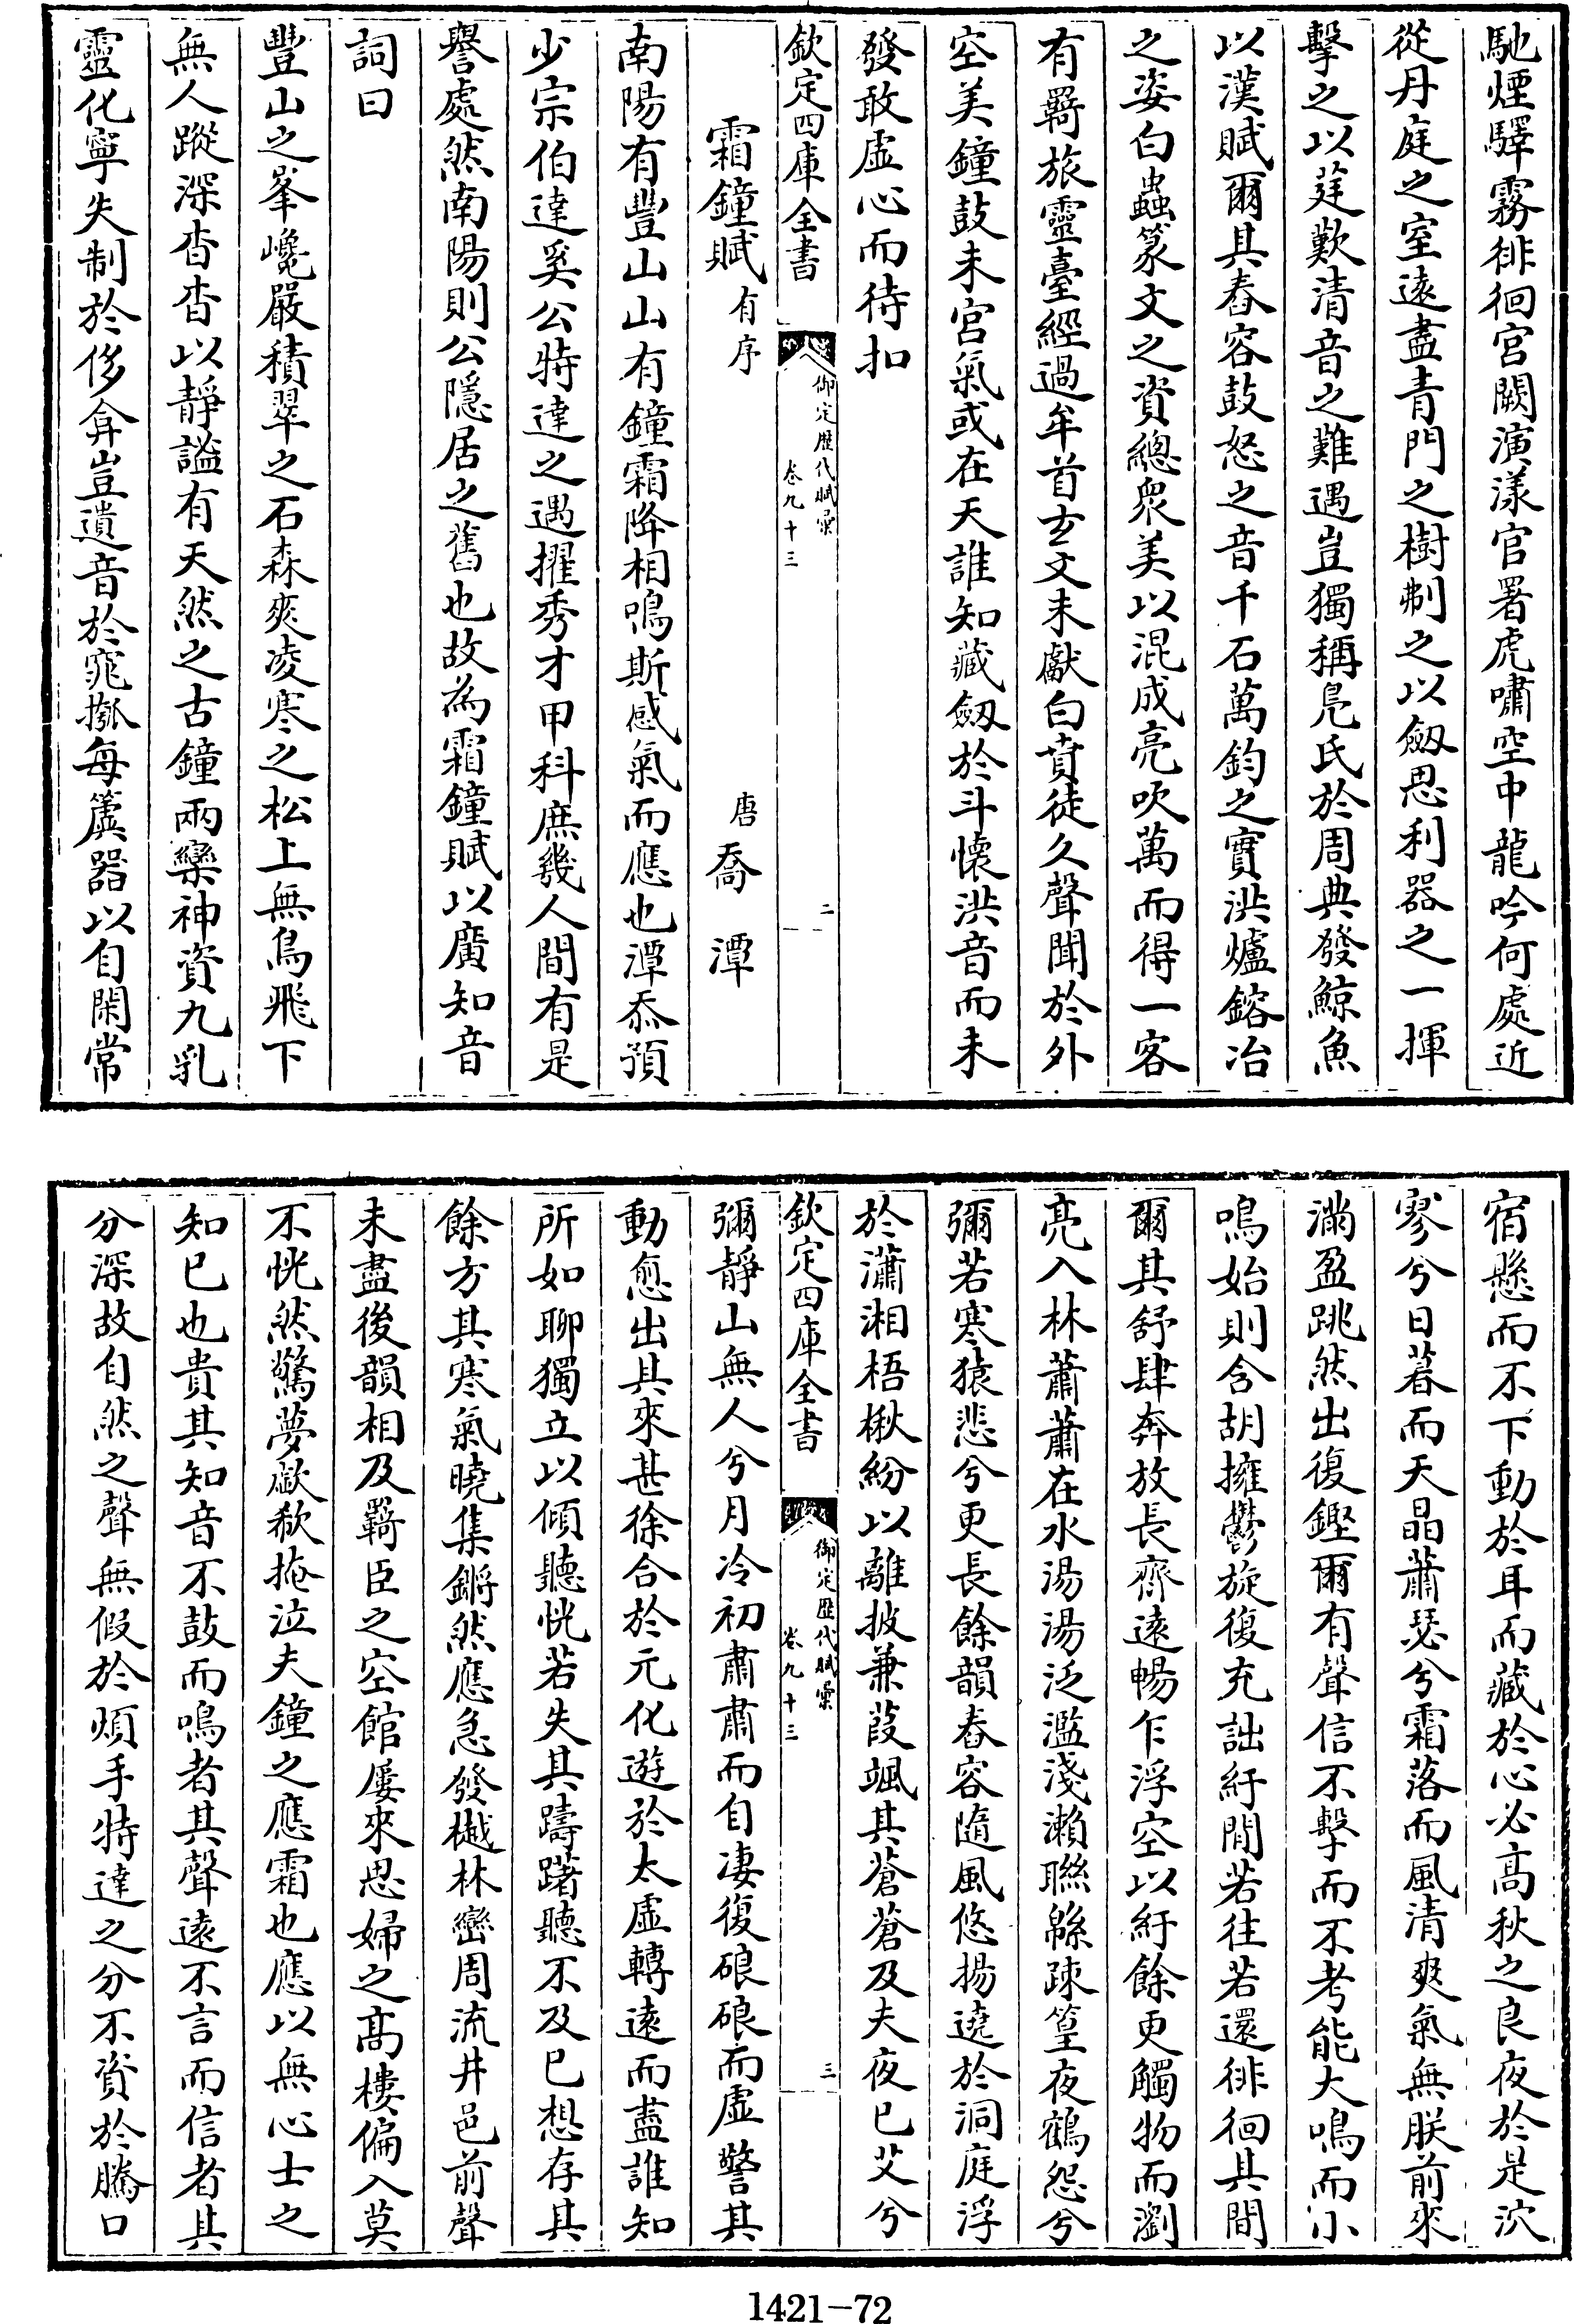 馳煙驛霧徘徊宫闕演漾官署虎嘯空中龍吟何處近
從丹庭之室遠盡青門之樹制之以劒思利器之一揮
擊之以莛歎清音之難遇豈獨稱鳧氏於周典發鯨魚
以漢賦爾其舂容鼓怒之音千石萬鈞之實洪爐鎔冶
之姿白蟲篆文之資總衆美以混成亮吹萬而得一客
有羇旅靈臺經過牟首玄文未獻白賁徒久聲聞於外
空美鐘鼓未宫氣或在天誰知藏劒於斗懷洪音而未
發敢虚心而待扣
欽定四庫全書
御定歴代賦彚
卷九十三
二
霜鐘賦有序
唐喬潭
南陽有豐山山有鐘霜降相鳴斯感氣而應也潭忝預
少宗伯達奚公特達之遇擢秀才甲科庶幾人間有是
譽處然南陽則公隱居之舊也故為霜鐘賦以廣知音
詞曰
豐山之峯巉嚴積翠之石森爽凌寒之松上無鳥飛下
無人蹤深杳杳以靜謐有天然之古鐘兩欒神資九乳
靈化寧失制於侈弇豈遺音於窕摦每簴器以自閑常
宿懸而不下動於耳而藏於心必高秋之良夜於是泬
寥兮日暮而天晶蕭瑟兮霜落而風清爽氣無朕前來
滿盈跳然出復鏗爾有聲信不擊而不考能大鳴而小
鳴始則含胡擁鬱旋復充詘紆閒若往若還徘徊其間
爾其舒肆奔放長齊遠暢乍浮空以紆餘更觸物而瀏
亮入林蕭蕭在水湯湯泛濫淺瀨聯緜疎篁夜鶴怨兮
彌若寒猿悲兮更長餘韻舂容隨風悠揚遶於洞庭浮
於瀟湘梧楸紛以離披兼葭颯其蒼蒼及夫夜已艾兮
欽定四庫全書
御定歴代賦彚
卷九十三
三
彌靜山無人兮月冷初肅肅而自凄復硠硠而虚警其
動愈出其來甚徐合於元化遊於太虚轉遠而盡誰知
所如聊獨立以傾聽恍若失其躊躇聽不及已想存其
餘方其寒氣曉集鏘然應急發樾林巒周流井邑前聲
未盡後韻相及羇臣之空館屢來思婦之髙樓偏入莫
不恍然驚夢歔欷掩泣夫鐘之應霜也應以無心士之
知已也貴其知音不鼓而鳴者其聲遠不言而信者其
分深故自然之聲無假於煩手特達之分不資於騰口
1421-72